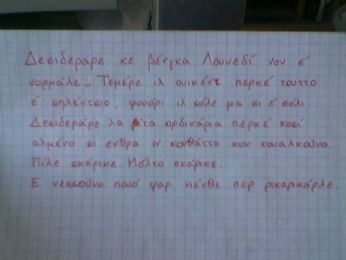 Δεσιδεράρε κε βένγκα Λουνεδί νον έ
νορμάλε.. Τεμέρε ιλ περκέ τουττο
έ σηλέντσιο, φουόρι ιλ σόλε μα σι έ σόλι.
Δεσιδεράρε λα ορδινάρια περκέ κοσί
αλμένο σι ενθρα ιν κονθάττο κον κουαλκούνο.
Πίλε σκάρικε. Μόλτο σκάρικε.
Ε νεσσούνο πουό φαρ νιένθε περ ρικαρικάρλε.